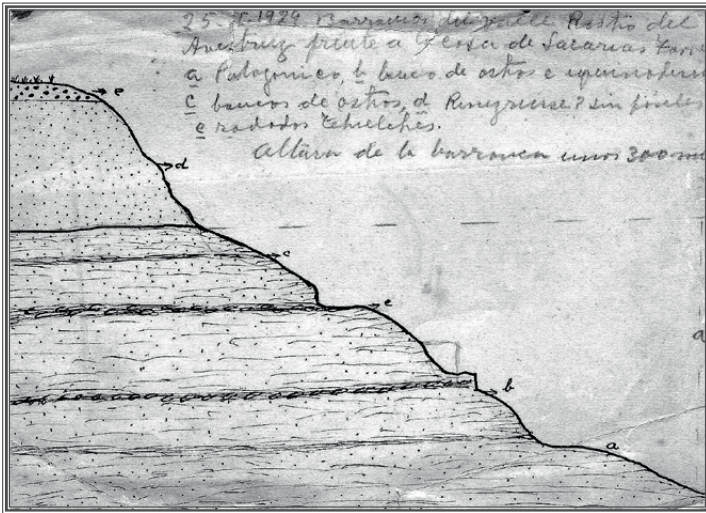 25. X. 1924 Barrancas del valle Rastro del
Avestruz frente a la casa de Sacarias
a Patagonico, b banco de ostras e
c bancos de ostras, d Rionegrense? sin fosiles
e rodados Tehuelches.
Altura de la barranca unos 300
e
d
c
e
b
a
a